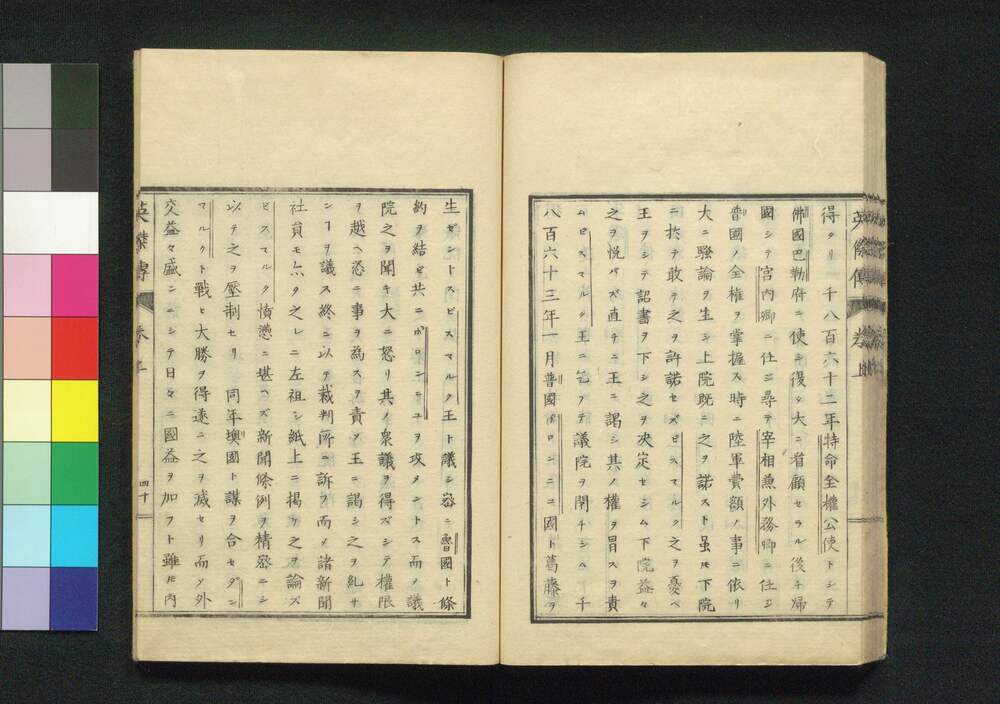 得タリ 千八百六十二年特命全權公使トシテ
佛國巴勒府ニ使シ復タ大ニ眷顧セラル後チ歸
國シテ宮内卿ニ任ジ尋テ宰相兼外務卿ニ任シ
普國ノ全權ヲ掌握ス時ニ陸軍費額ノ事ニ依リ
大ニ騒論ヲ生シ上院既ニ之ヲ諾スト虽𪜈下院
ニ於テ敢テ之ヲ許諾セズビスマルク之ヲ憂ヘ
王ヲシテ詔書ヲ下シ之ヲ决定セシム下院益々
之ヲ悦バズ直チニ王ニ謁シ其ノ權ヲ冒スヲ責
ムビスマルク王ニ乞フテ議院ヲ閉チシム 千
八百六十三年一月普國ポロンニユ國ト葛藤ヲ
生ゼントスビスマルク王ト議シ密ニ魯國ト條
約ヲ結ビ共ニポロンニユヲ攻メントス而ノ議
院之ヲ聞キ大ニ怒リ其ノ衆議ヲ得ズシテ權限
ヲ越ヘ恣ニ事ヲ為スヲ責メ王ニ謁シ之ヲ糺サ
ンヿヲ議ス終ニ以テ裁判所ニ訴フ而ノ諸新聞
社員モ亦タ之レニ左袒シ紙上ニ掲ケ之ヲ論ズ
ビスマルク憤懣ニ堪ヘズ新聞條例ヲ精密ニシ
以テ之ヲ壓制セリ 同年墺國ト謀ヲ合セダン
マルクト戰ヒ大勝ヲ得遂ニ之ヲ滅セリ而ノ外
交益々盛ンニシテ日々ニ國益ヲ加フト雖𪜈内
英傑傳 卷上 四十